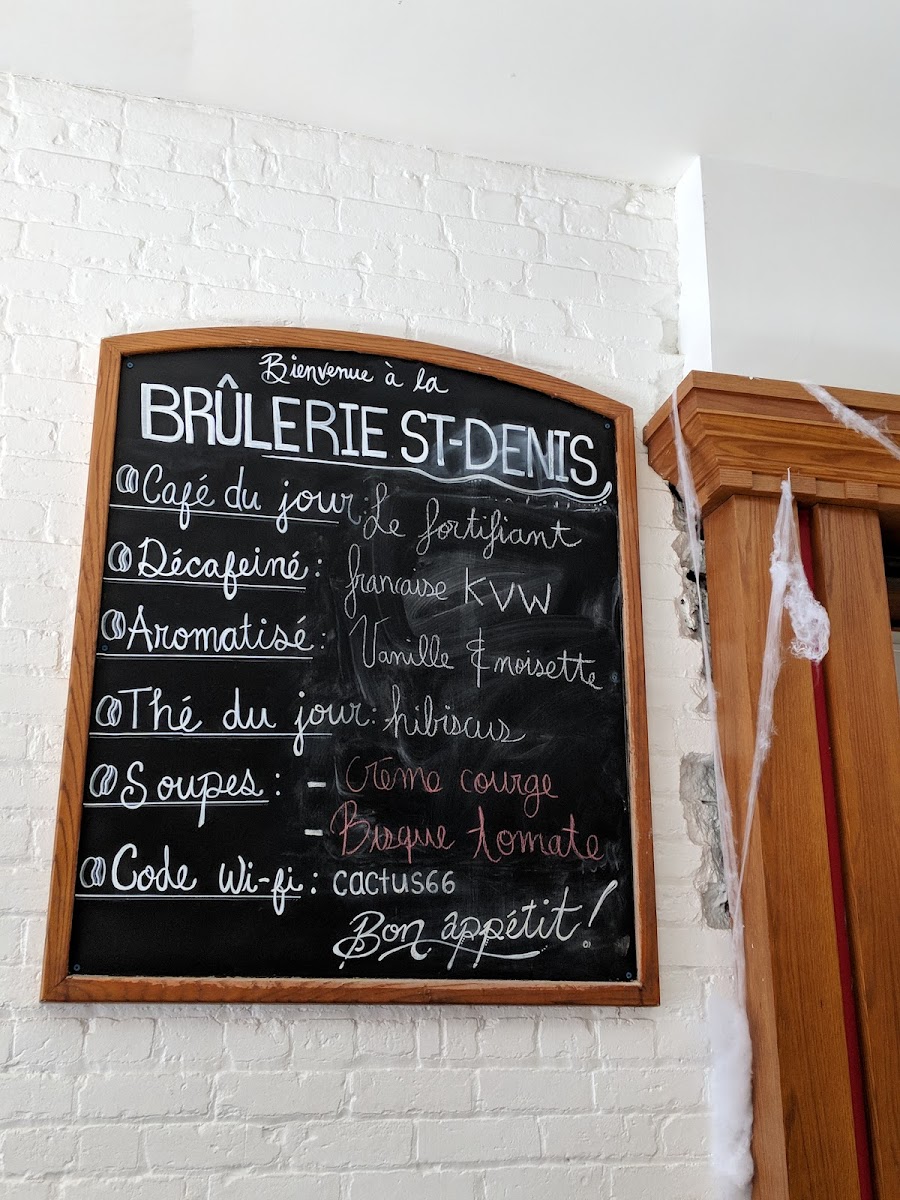 Bienvenue à la
BRÛLERIE ST-DENIS
Café du jour: Le fortifiant
Décafeiné: francaise KVW
Aromatisé: Vanille & noisette
Thé du jour: hibiscus
Soupes: - Crème courge
- Bisque tomate
Code Wi-fi: cactus66
Bon appétit!